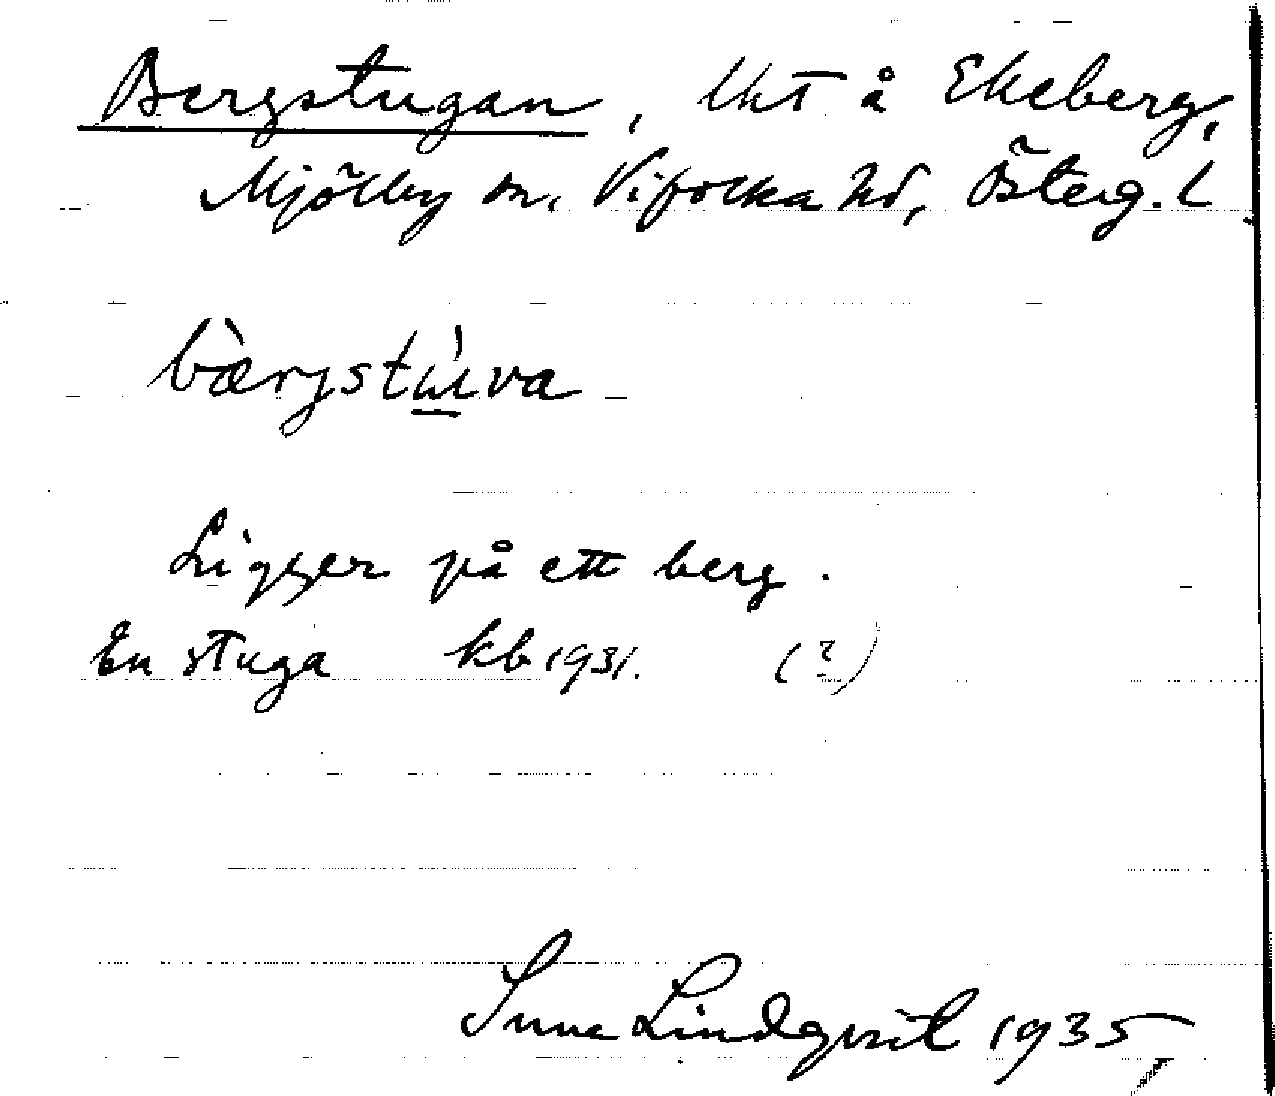 Bergstugan, lht å Ekeberg,
Mjölby sn, Vifolka hd, Österg. l
bàrgstùva
Ligger på ett berg.
En stuga kb 1931. (?)
Sune Lindqvist 1935